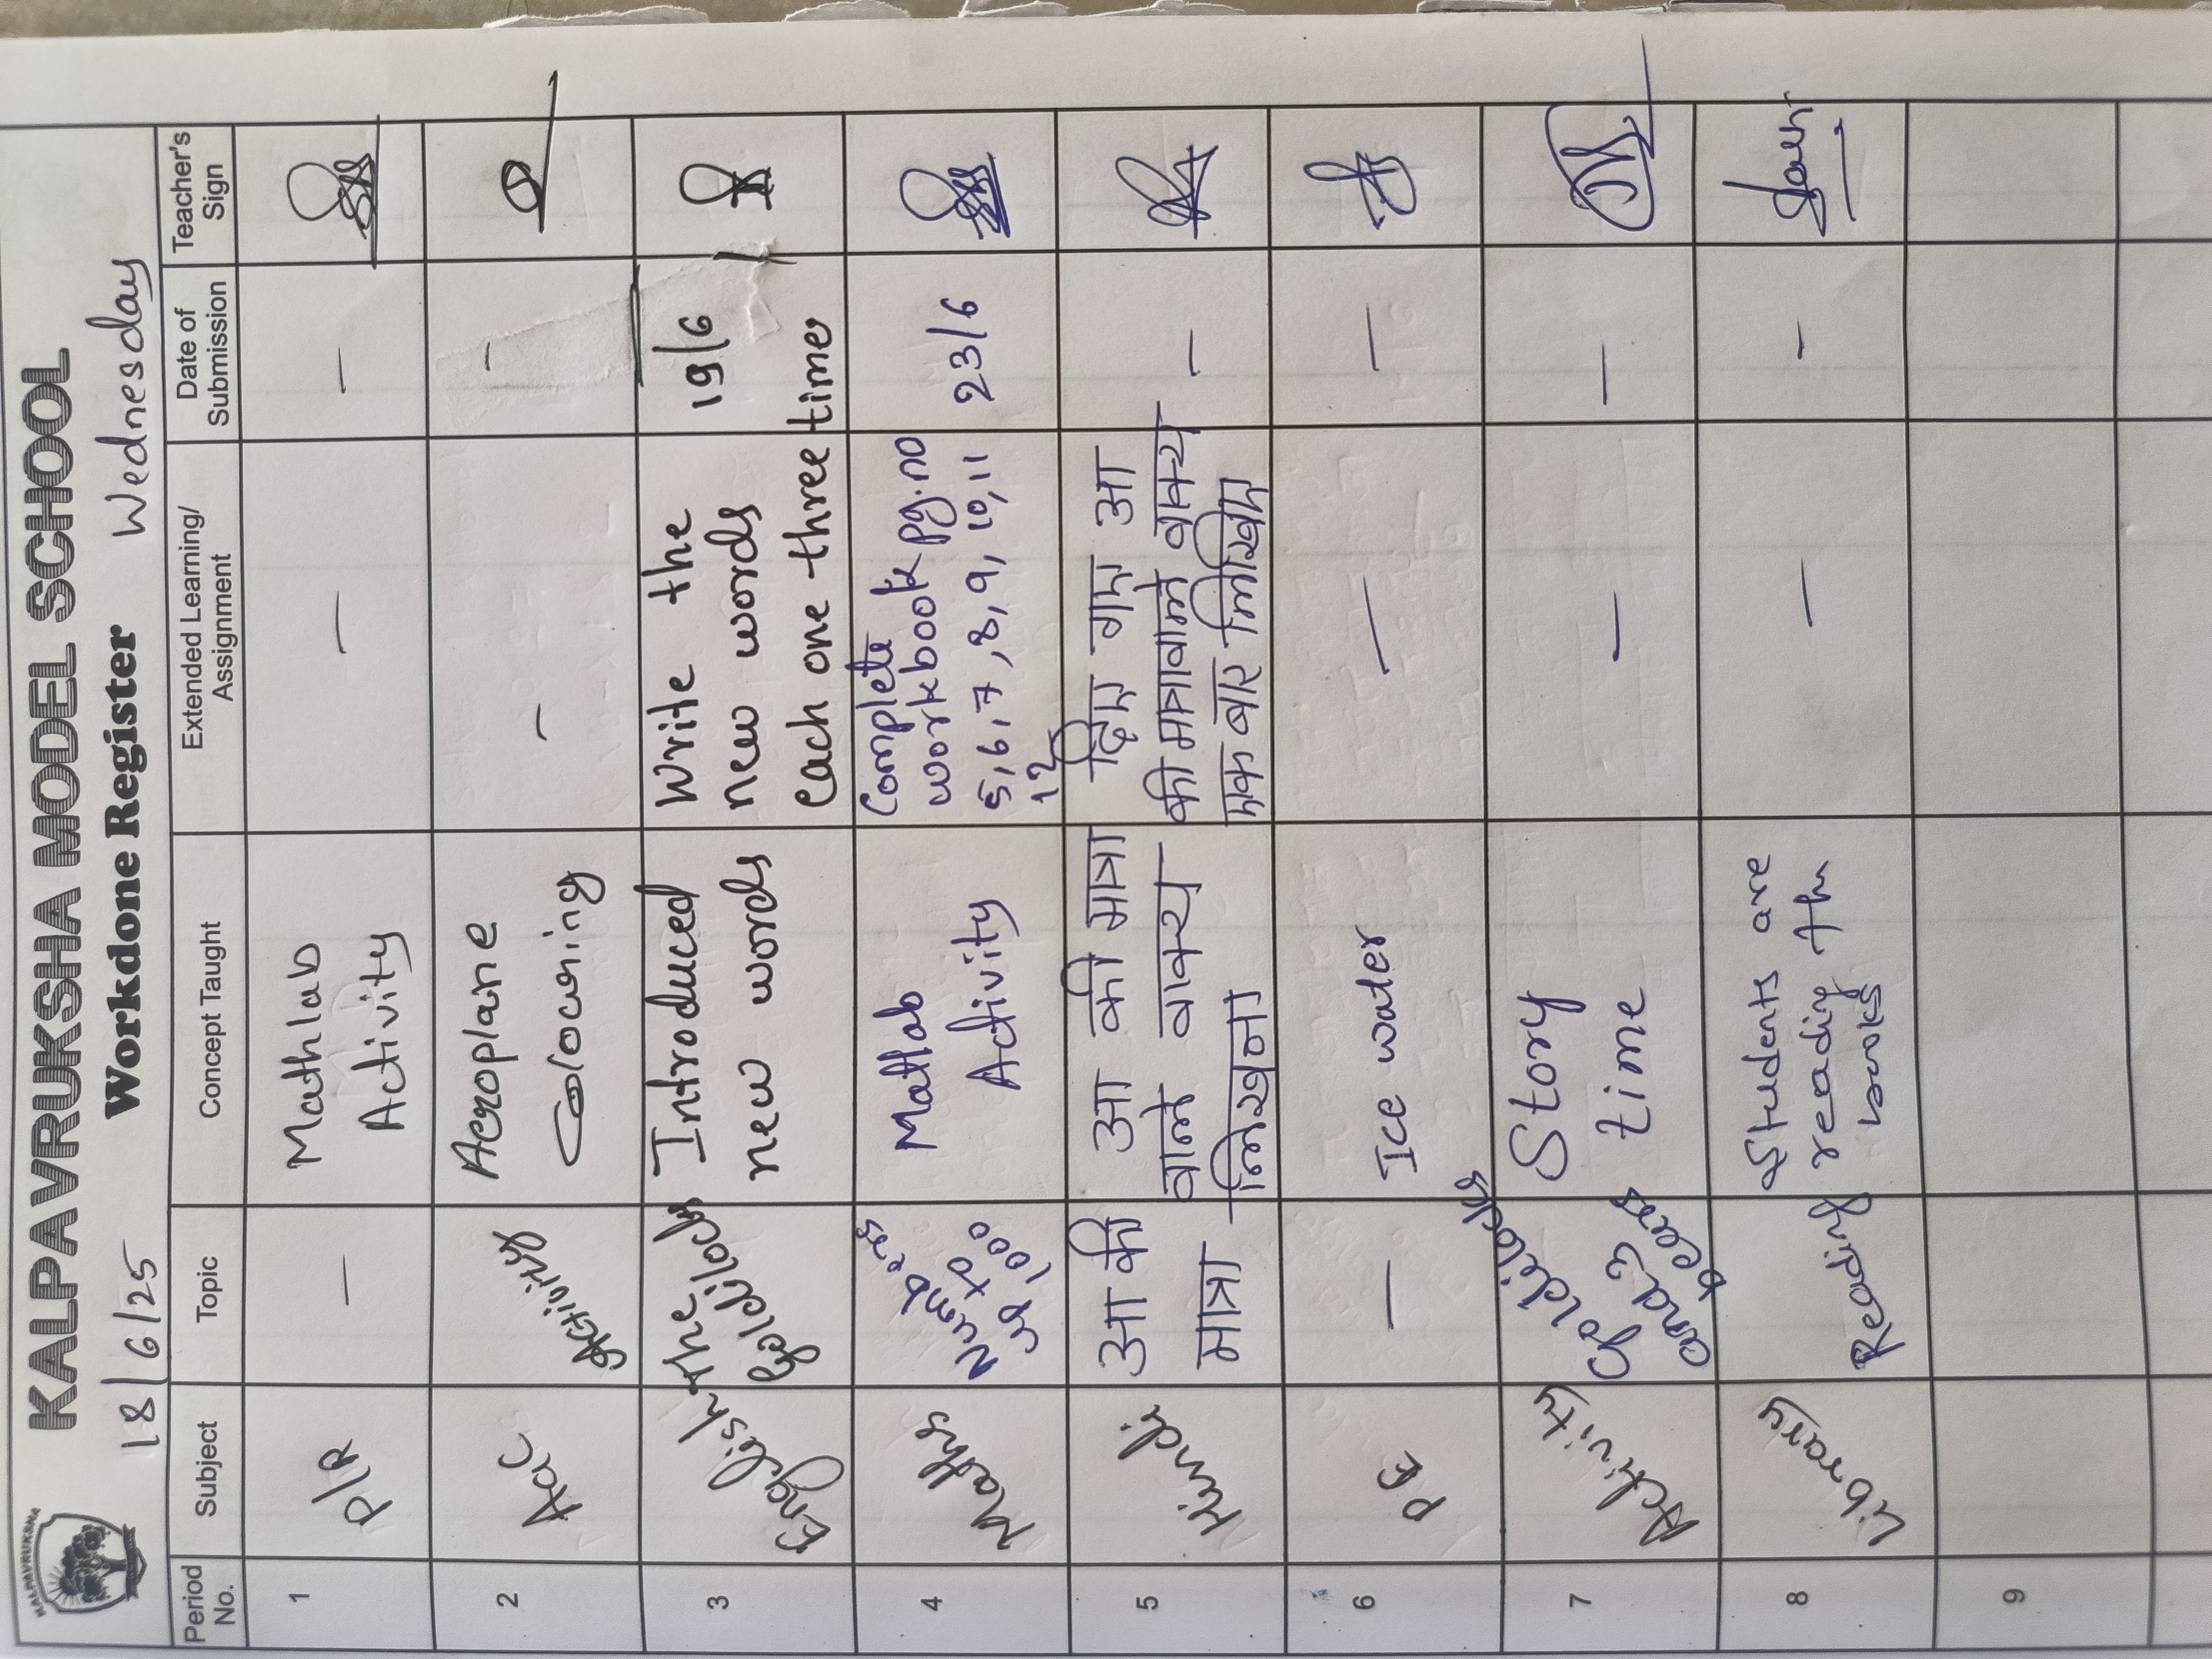 KALPAVRUKSHA
KALPAVRUKSHA MODEL SCHOOL
18/6/25 Workdone Register Wednesday
Period No. Subject Topic Concept Taught Extended Learning/ Assignment Date of Submission Teacher's Sign
1 PIR — Mathlab Activity — —
2 A&C Activity Aeroplane Colouring — —
3 English The Goldilocks Introduced new words Write the new words each one three time 19/6
4 Maths Numbers up to 1000 Matlab Activity Complete workbook pg.no 5,6,7,8,9,10,11 12 23/6
5 Hindi आ की मात्रा आ की मात्रा वाले वाक्य लिखना दिए गए आ की मात्रावाले वाक्य एक बार लिखिए —
6 PE — Ice water — —
7 Activity Goldilocks and 3 bears Story time — —
8 Library Reading Students are reading the books — —
9